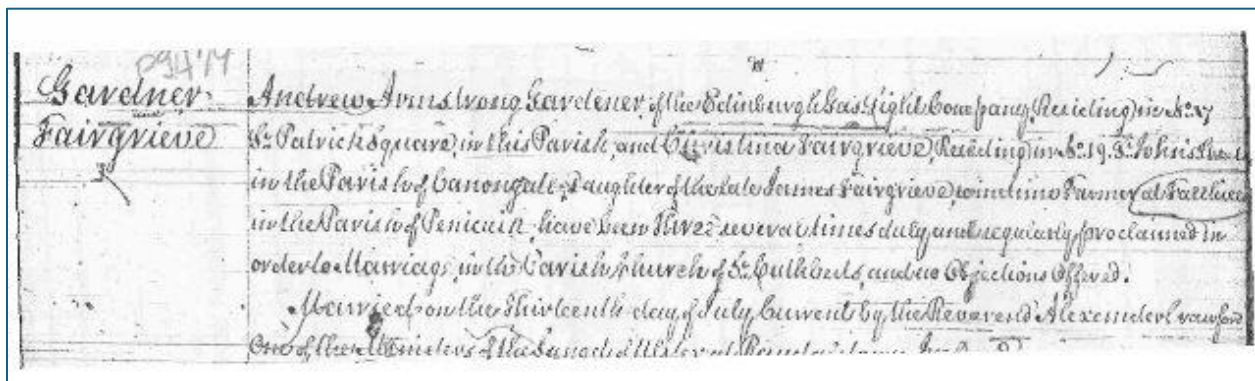 P94'14
Gardner
and
Fairgrieve
3d/
Andrew Armstrong Gardener, of the Edinburgh Gas Light Company, Residing in No. 17
St. Patrick Square, in this Parish, and Christina Fairgrieve, Residing in No. 19. St. John's Street
in the Parish of Canongate, Daughter of the late James Fairgrieve, sometime Farmer at
in the Parish of Penicuik, have been Three several times duly and regularly proclaimed in
order to Marriage, in the Parish Church of St. Cuthberts, and no Objections Offered.
Married on the Thirteenth day of July Current by the Reverend Alexander Crawford
One of the Ministers of the